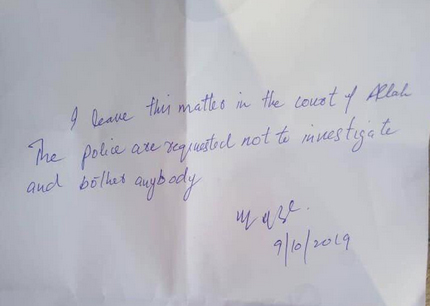 I leave this matter in the court of Allah
The police are requested not to investigate
and bother anybody
9/10/2019